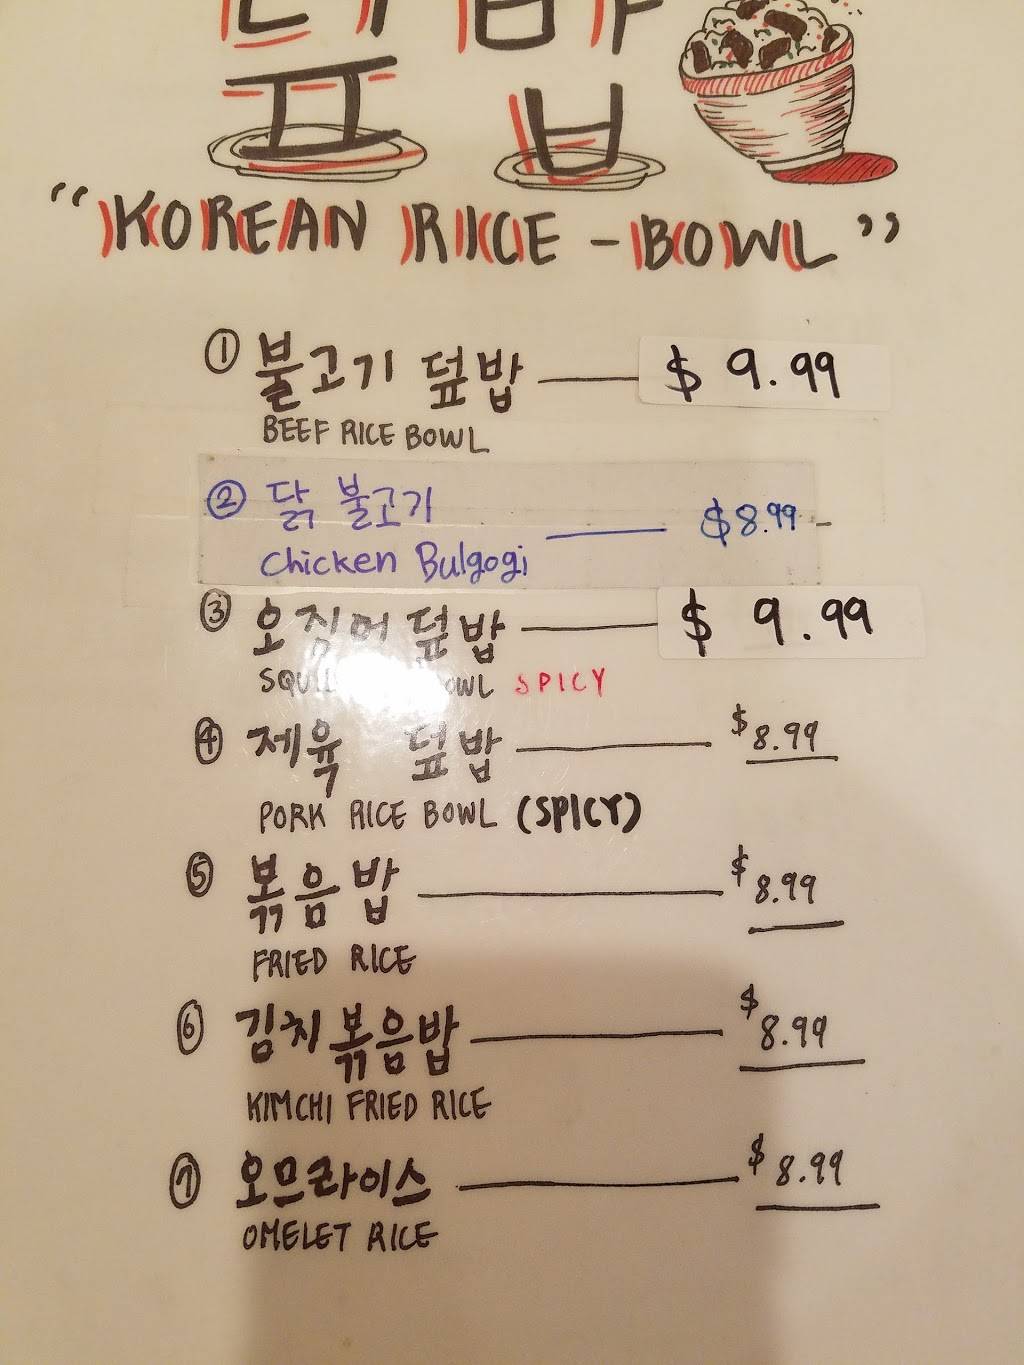 덮밥
"KOREAN RICE - BOWL"
① 불고기 덮밥 — $ 9.99
BEEF RICE BOWL
② 닭 불고기 — $8.99
Chicken Bulgogi
③ 오징어 덮밥 — $ 9.99
BOWL SPICY
④ 제육 덮밥 — $8.99
PORK RICE BOWL (SPICY)
⑤ 볶음밥 — $8.99
FRIED RICE
⑥ 김치볶음밥 — $8.99
KIMCHI FRIED RICE
⑦ 오므라이스 — $8.99
OMELET RICE